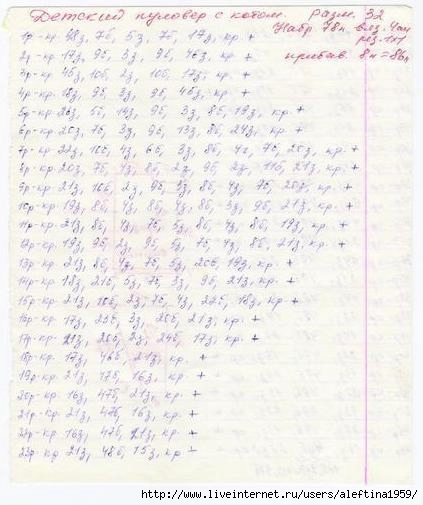 Детский пуловер с котом. Разм. 32
Набр 78п. вяз. 4см
рез. 1x1
прибав. 8п = 86п
1р-кр 48з, 7б, 5з, 7б, 17з, кр. +
2р-кр 17з, 9б, 3з, 9б, 46з, кр +
3р-кр 45з, 10б, 2з, 10б, 17з, кр. +
4р-кр 18з, 9б, 3з, 9б, 45з, кр +
5р-кр 26з, 5б, 14з, 9б, 3з, 8б, 19з, кр. +
6р-кр 20з, 7б, 3з, 9б, 13з, 8б, 24з, кр. +
7р-кр 22з, 10б, 4з, 6б, 3з, 8б, 4з, 7б, 20з, кр. +
8р-кр 20з, 7б, 4з, 8б, 2з, 9б, 2з, 11б, 21з, кр. +
9р-кр 21з, 10б, 2з, 9б, 3з, 8б, 4з, 7б, 20з, кр. +
10р-кр 19з, 8б, 4з, 8б, 4з, 8б, 3з, 9б, 21з, кр. +
11р-кр 21з, 8б, 4з, 7б, 5з, 8б, 4з, 8б, 19з, кр. +
12р-кр 19з, 9б, 2з, 9б, 5з, 7б, 4з, 8б, 21з, кр. +
13р-кр 21з, 8б, 4з, 7б, 5з, 20б, 19з, кр. +
14р-кр 18з, 21б, 5з, 7б, 3з, 9б, 21з, кр. +
15р-кр 21з, 10б, 2з, 7б, 4з, 22б, 18з, кр. +
16р-кр 17з, 23б, 3з, 20б, 21з, кр. +
17р-кр 21з, 20б, 2з, 24б, 17з, кр. +
18р-кр 17з, 46б, 21з, кр. +
19р-кр 21з, 47б, 16з, кр. +
20р-кр 16з, 47б, 21з, кр. +
21р-кр 21з, 47б, 16з, кр. +
22р-кр 16з, 47б, 21з, кр. +
23р-кр 21з, 48б, 15з, кр +
http://www.liveinternet.ru/users/aleftina1959/